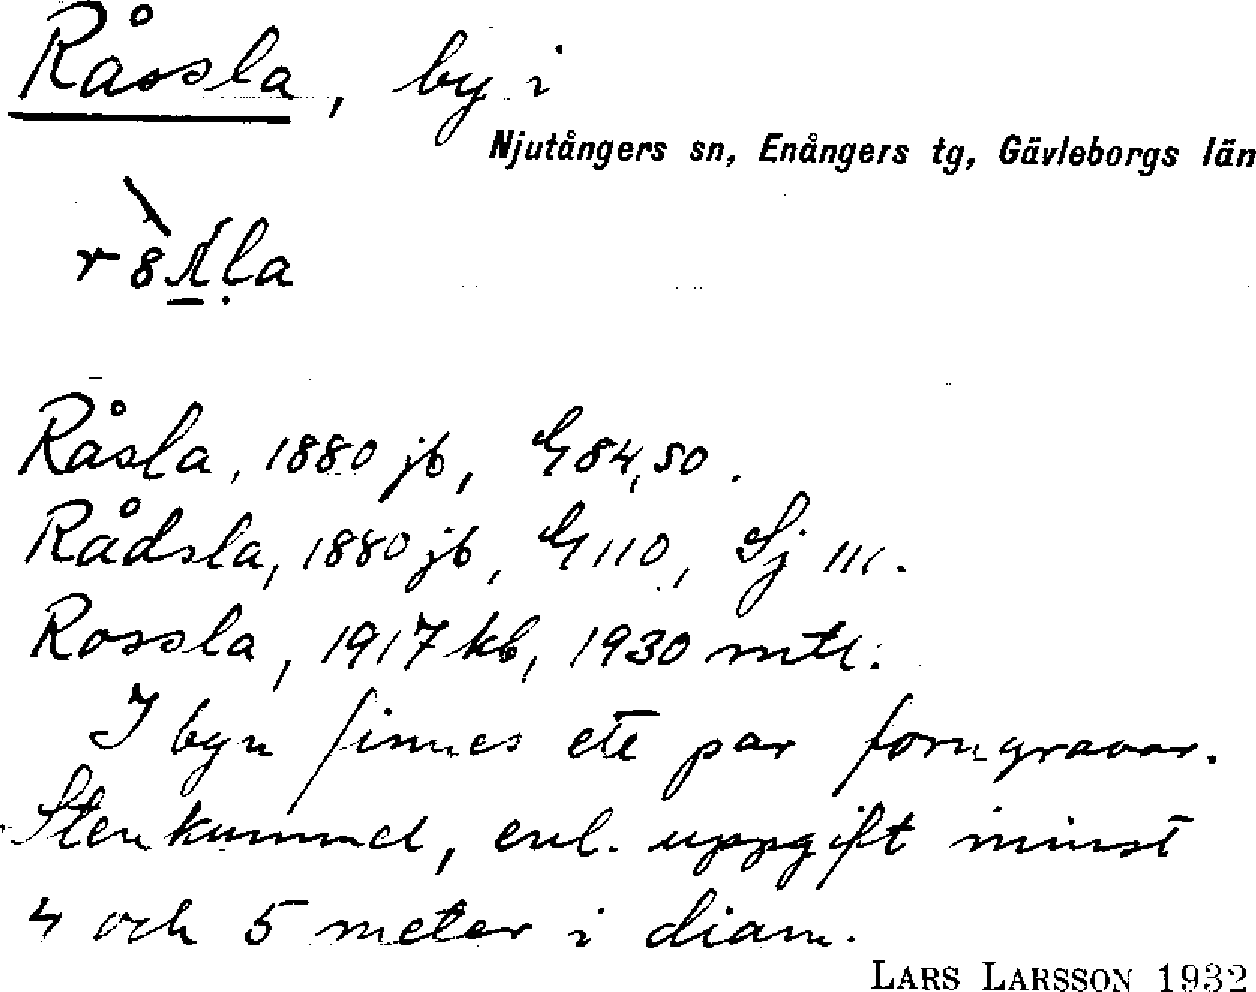 Råssla, by i
Njutångers sn, Enångers tg, Gävleborgs län
Råsla, 1880 jb, G 84, 50.
Rådsla, 1880 jb, G 110, Sj 111.
Rossla, 1917 kb, 1930 mtl.
I byn finnes ett par forngravar.
Stenkummel, enl. uppgift minst
4 och 5 meter i diam.
LARS LARSSON 1932